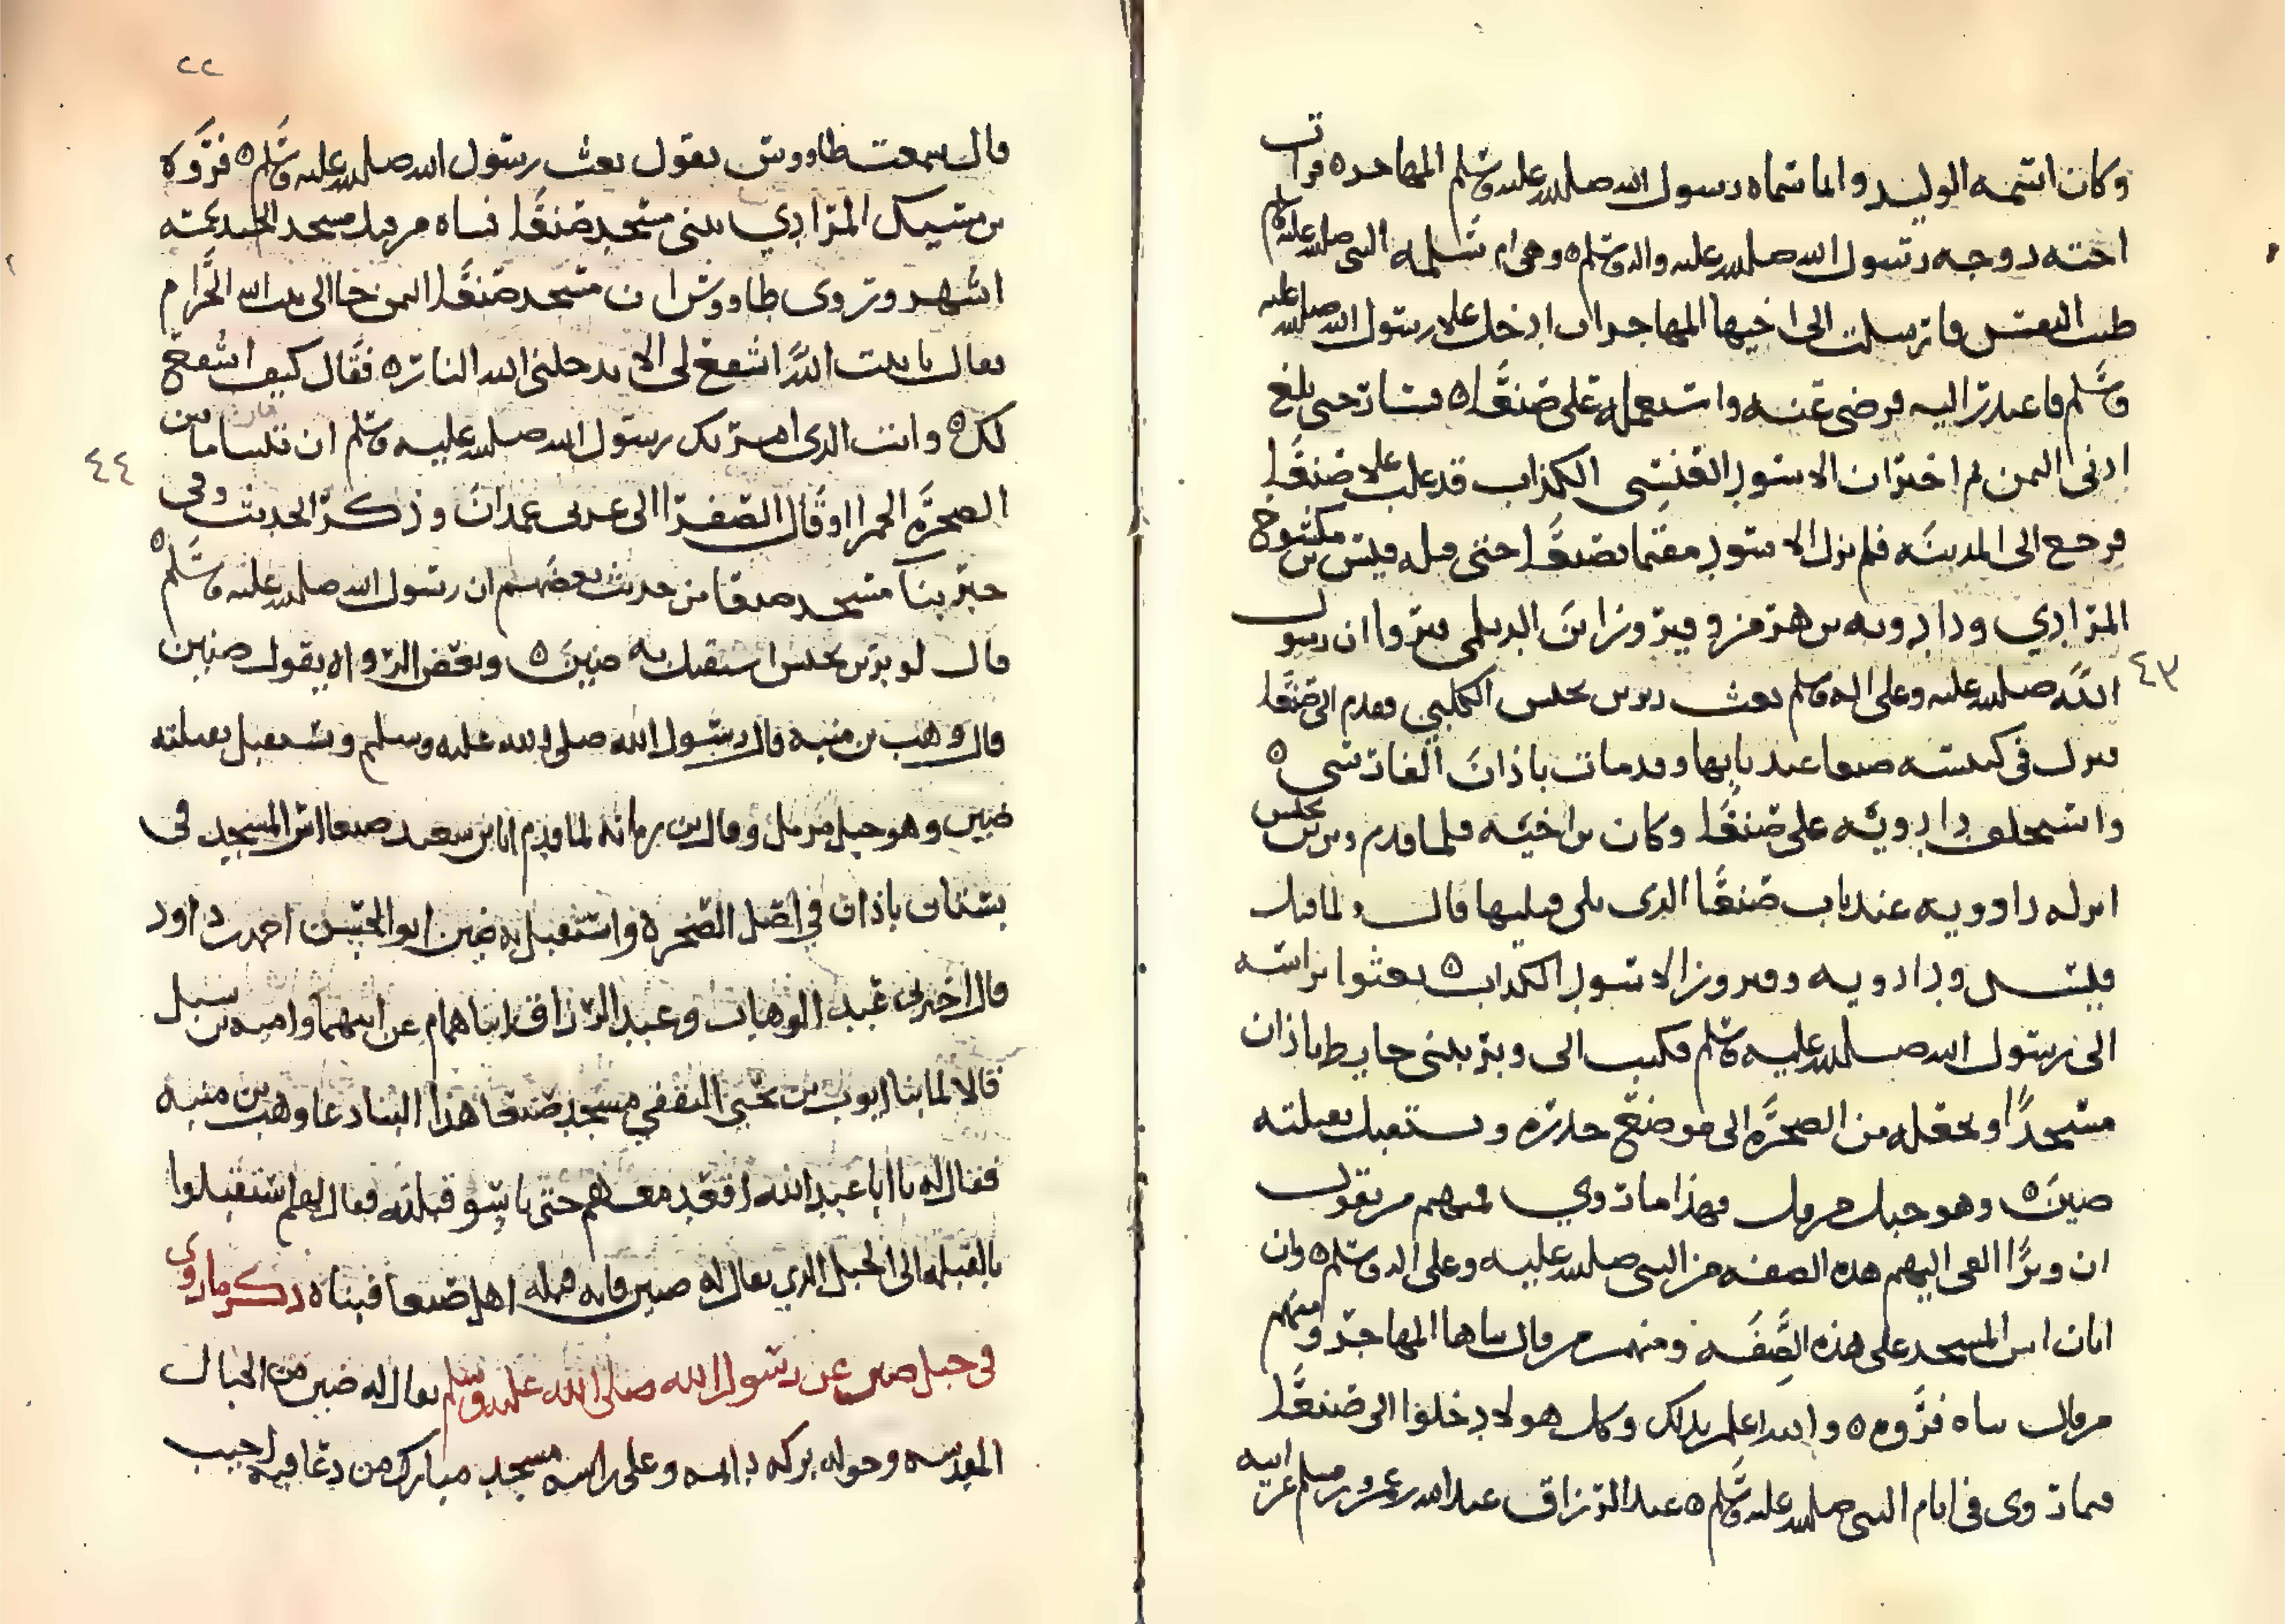 وكان اسمه الوليد وانما سماه رسول الله صلى الله عليه وسلم المهاجر ٥ قرابة
اخته زوجه رسول الله صلى الله عليه واله وسلم ٥ وهي ام سلمه النبي صلى الله عليه وسلم
طيب النفس فارسلت الى اخيها المهاجر ان ادخل على رسول الله صلى الله عليه
وسلم فاعتذر اليه فرضى عنه واستعمله على صنعا ٥ فسار حتى بلغ
ادنى اليمن ثم اخبر ان الاسود العنسي الكذاب قد غلب على صنعا
فرجع الى المدينه فلم يزل الاسود مقيما بصنعا حتى قتله قيس بن مكشوح
المرادي ودادويه بن هرمز وفيروز ابن الديلمي فيروا ان رسول
٤٣
الله صلى الله عليه وعلى اله وسلم بعث وبر بن يحنس الكلبي فقدم الى صنعا
فنزل في كنيسه صنعا عند بابها وقد مات باذان الفارسي ٥
واستخلف دادويه على صنعا وكان بن اخيه فلما قدم وبر بن يحنس
انزله دادويه عند باب صنعا الذي يلي قبليها قال ولما قتل
قيس ودادويه وفيروز الاسود الكذاب ٥ بعثوا براسه
الى رسول الله صلى الله عليه وسلم فكتب الى وبر يبني حايط باذان
مسجدًا ويجعله من الصخره الى موضع جدره ويستقبل بقبلته
ضين ٥ وهو جبل مرمل فهذا ما روي فمنهم من يقول
ان وبرًا القى اليهم هذه الصفه من النبي صلى الله عليه وعلى اله وسلم ٥ وان
ابان اسس المسجد على هذه الصفه ومنهم من قال بناها المهاجر ومنهم
من قال بناه فروه ٥ والله اعلم بذلك وكل هولا دخلوا الى صنعا
فيما روى في ايام النبي صلى الله عليه وسلم ٥ عبد الرزاق عبد الله بن عمرو بن مسلم عن ابيه
٢٢
قال سمعت طاووس يقول بعث رسول الله صلى الله عليه وسلم ٥ فروه
بن مسيك المرادي يبنى مسجد صنعا فبناه من قبل مسجد الجند بخمسه
اشهر وروى طاووس ان مسجد صنعا اليمن جا الى بيت الله الحرام
فقال يا بيت الله اشفع لى الا يدخلنى الله النار ٥ فقال كيف اشفع
لك ٥ وانت الذى امر بك رسول الله صلى الله عليه وسلم ان تبنا ما بين
٤٤
الصخره الحمرا او قال الصفرا الى غربى غمدان وذكر الحديث وفى
خبر بنا مسجد صنعا من حديث بعضهم ان رسول الله صلى الله عليه وسلم ٥
قال لوبر بن يحنس استقبل به ضين ٥ وبعض الرواه يقول صنين
قال وهب بن منبه قال رسول الله صلى الله عليه وسلم ويستقبل بقبلته
ضين وهو جبل مرمل وقال بن رمانه لما قدم ابان بن سعيد صنعا اسس المسجد في
بستان باذان في اصل الصخرة واستقبل به ضين ابو الحسين احمد داود
قال اخبرنى عبد الوهاب وعبد الرزاق ابنا همام عن ابيهما واميه بن سبل
قالا لما بنا ايوب بن يحيى الثقفي مسجد صنعا هذا البنا دعا وهب بن منبه
فقال له يا ابا عبد الله اقعد معهم حتى ياسسو قبلته فقال لهم استقبلوا
بالقبله الى الجبل الذي يقال له ضين فانه قبله اهل صنعا فبناه ذكر ما روى
في جبل ضين عن رسول الله صلى الله عليه وسلم يقال له ضين من الجبال
المقدسه وحوله بركه دايمه وعلى راسه مسجد مبارك من دعا فيه اجيب